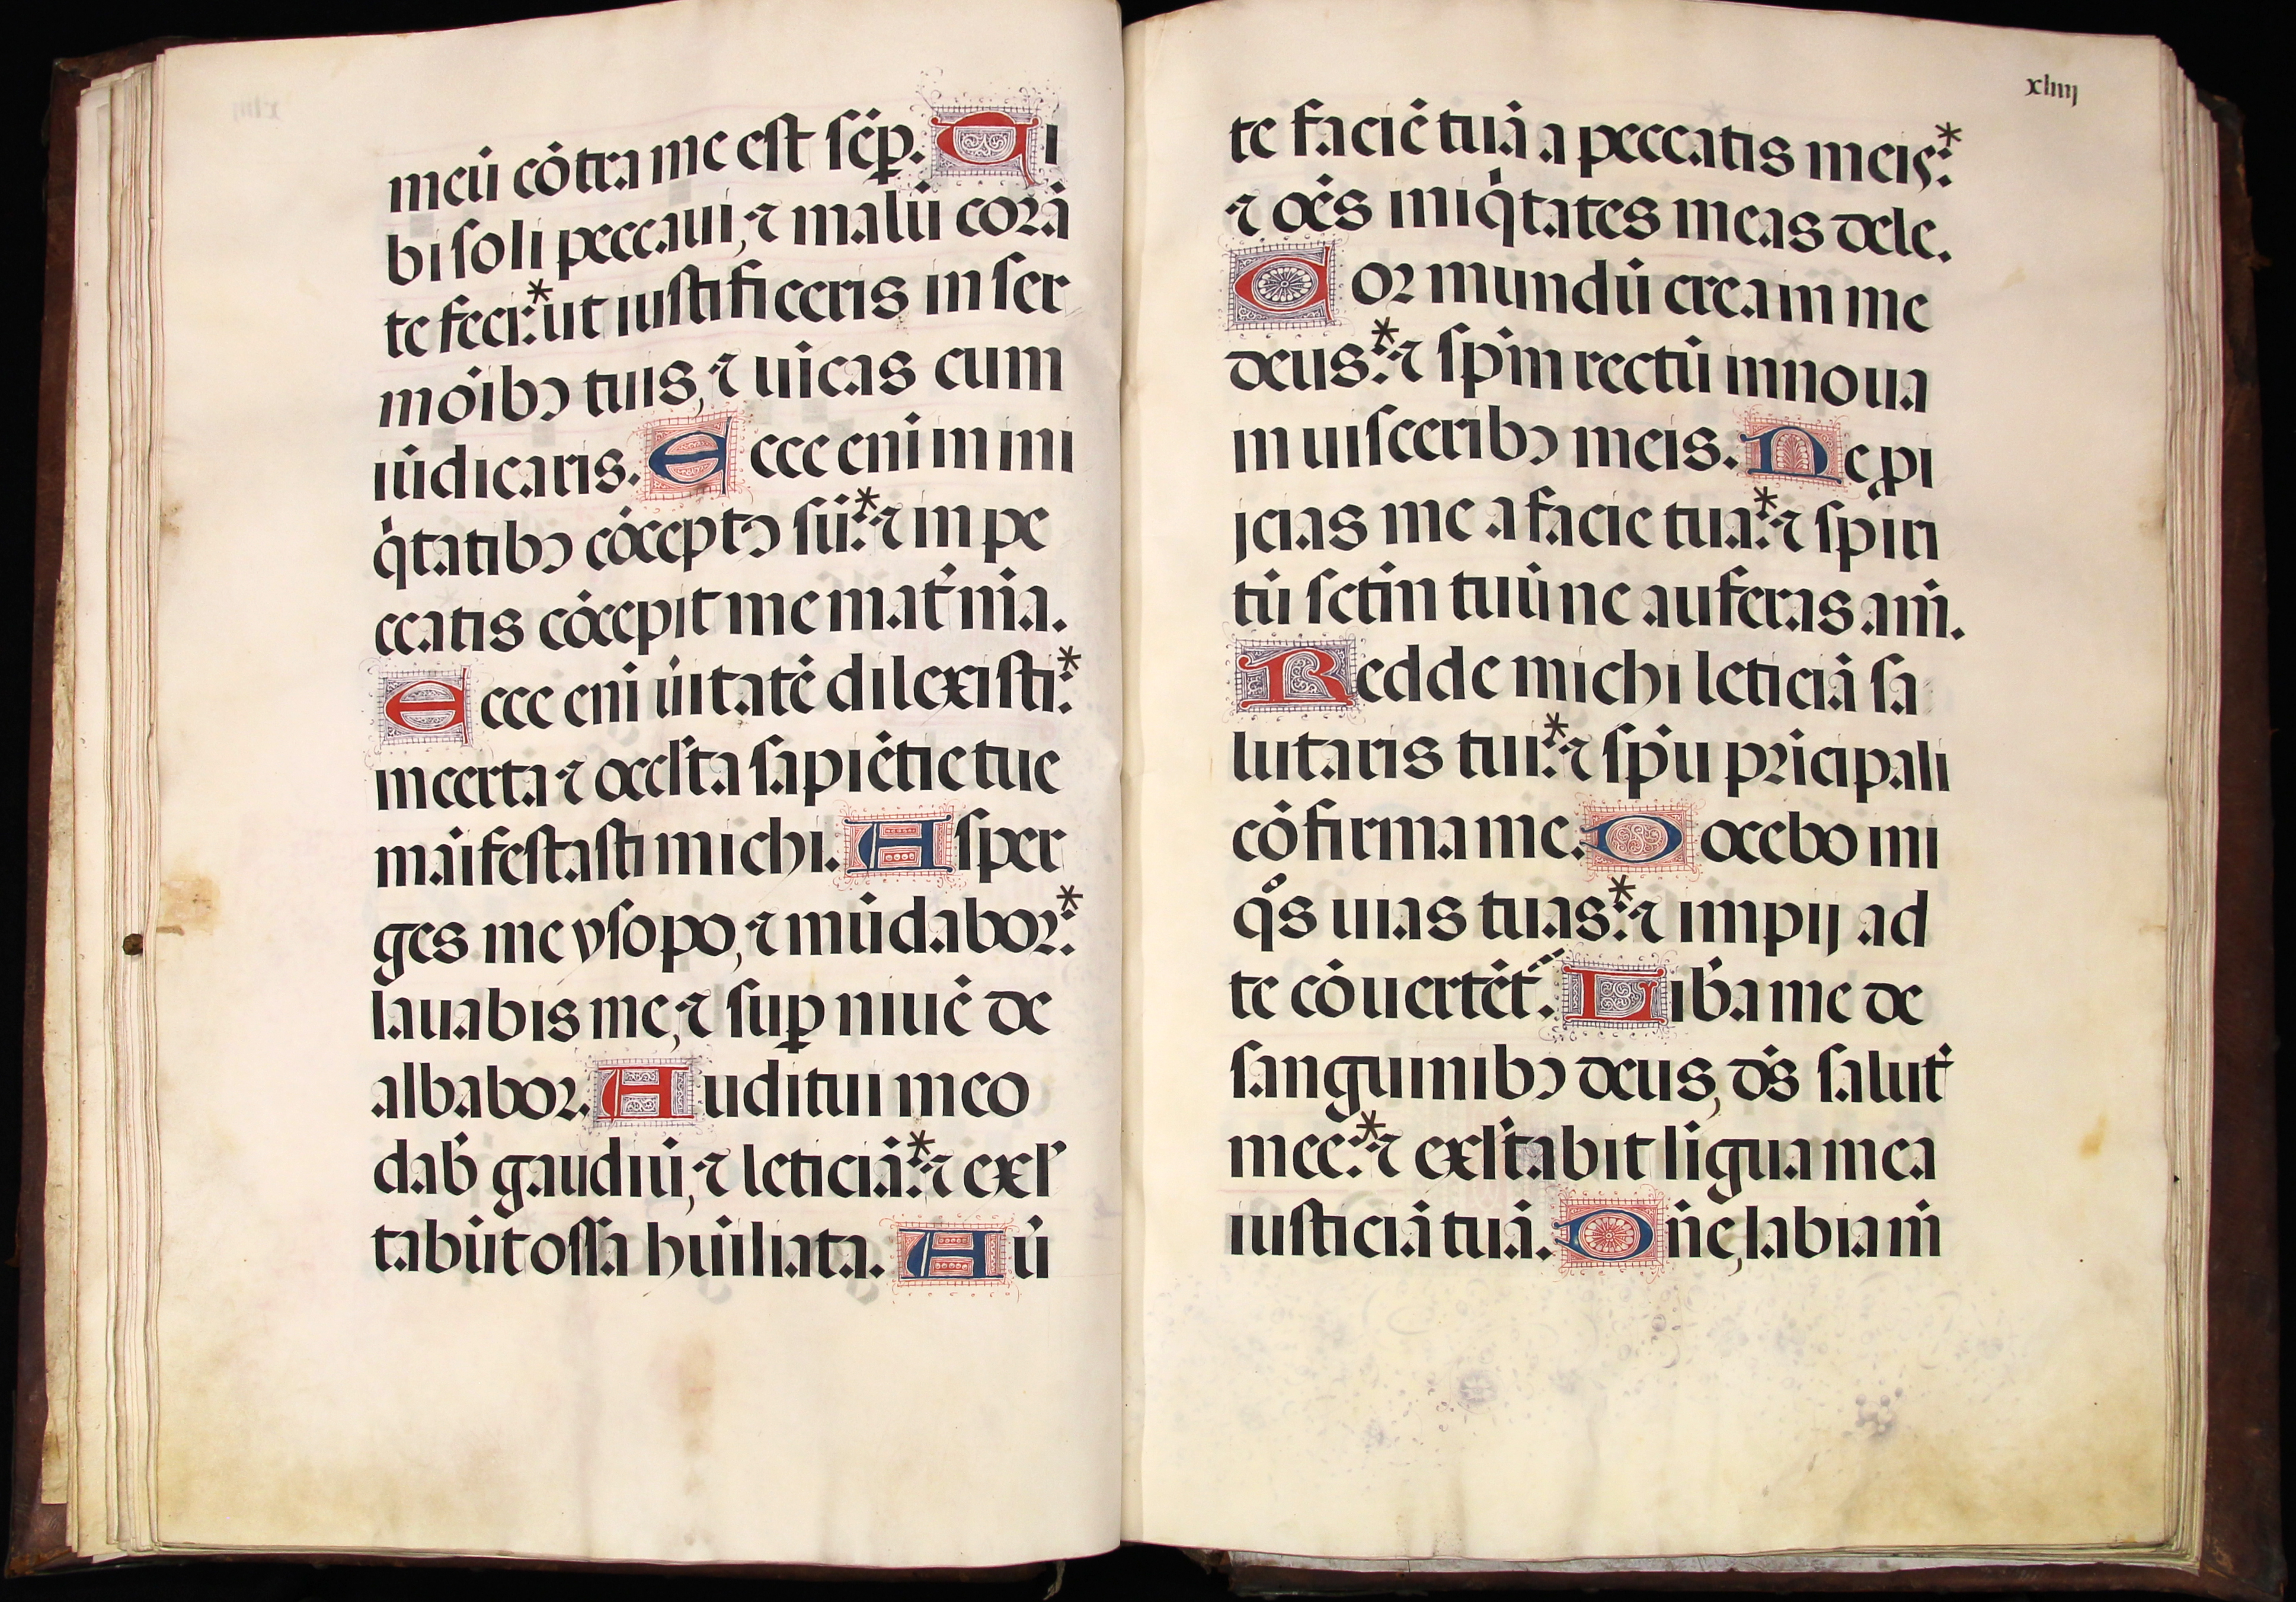 meū cōtra me est sēp. Ti
bi soli peccaui, ⁊ malū corā
te feci:* ut iustificeris in ser
mōibꝰ tuis, ⁊ uīcas cum
iūdicaris. Ecce eni in ini
q̇tatibꝰ cōceptꝰ sū:* ⁊ in pe
ccatis cōcepit me mat̄ m̄a.
Ecce eni ūitatē dilexisti:*
incerta ⁊ occl̄ta sapiētie tue
māifestasti michi. Asper
ges me ysopo, ⁊ mūdabor:*
lauabis me, ⁊ suꝑ niuē de
albabor. Auditui meo
dab̄ gaudiū, ⁊ leticiā:* ⁊ exl̄
tabūt ossa hūiliata. Aū
xliiij
te faciē tuā a peccatis meis:*
⁊ oēs iniq̇tates meas dele.
Cor mundū crea in me
deus:* ⁊ sp̄m rectū innoua
in uisceribꝰ meis. Ne ꝓi
jcias me a facie tua:* ⁊ spiri
tū sctm̄ tuū ne auferas a m̄.
Redde michi leticiā sa
lutaris tui:* ⁊ sp̄u prīcipali
cōfirma me. Docebo ini
qͦs uias tuas:* ⁊ impij ad
te cōuertēt̄. Lib̄a me de
sanguinibꝰ deus, ds̄ salut̄
mee:* ⁊ exl̄tabit līgua mea
iusticiā tuā. Dn̄e, labia m̄